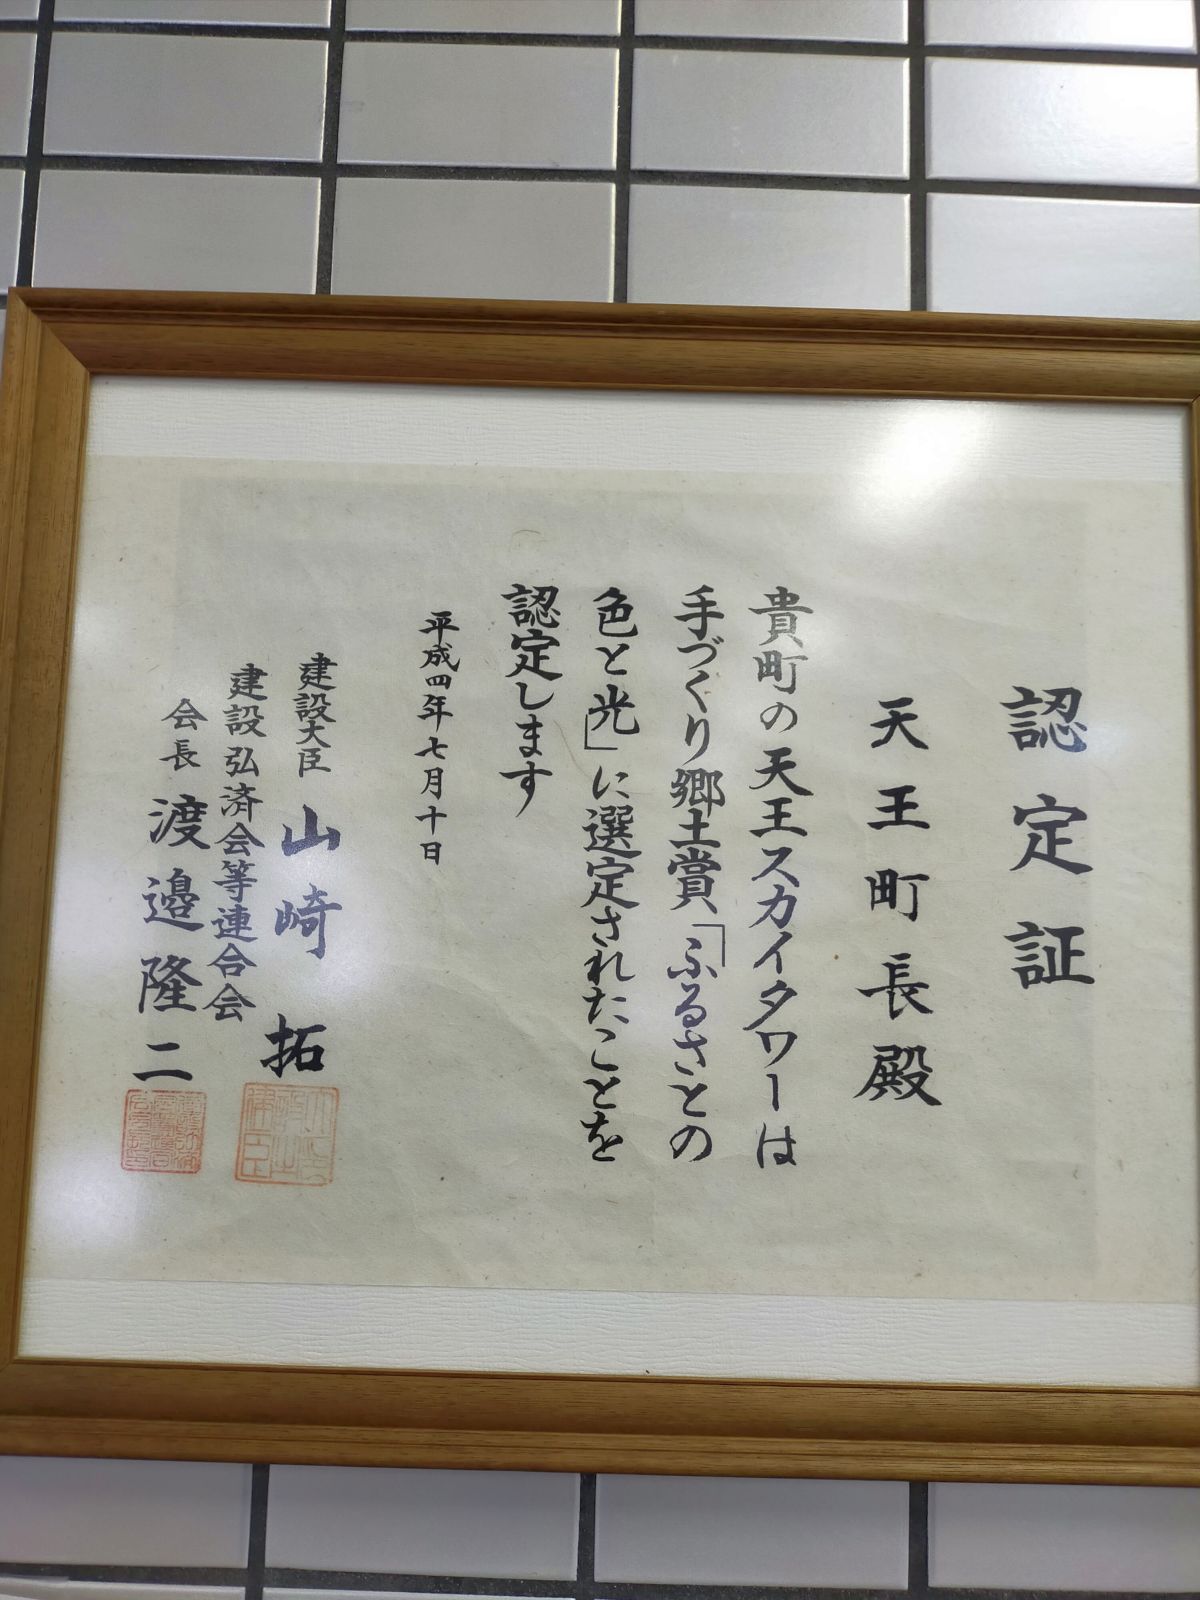 認定証
天王町長殿
貴町の天王スカイタワーは
手づくり郷土賞「ふるさとの
色と光」に選定されたことを
認定します
平成四年七月十日
建設大臣 山崎 拓
建設弘済会等連合会
会長 渡邉隆二